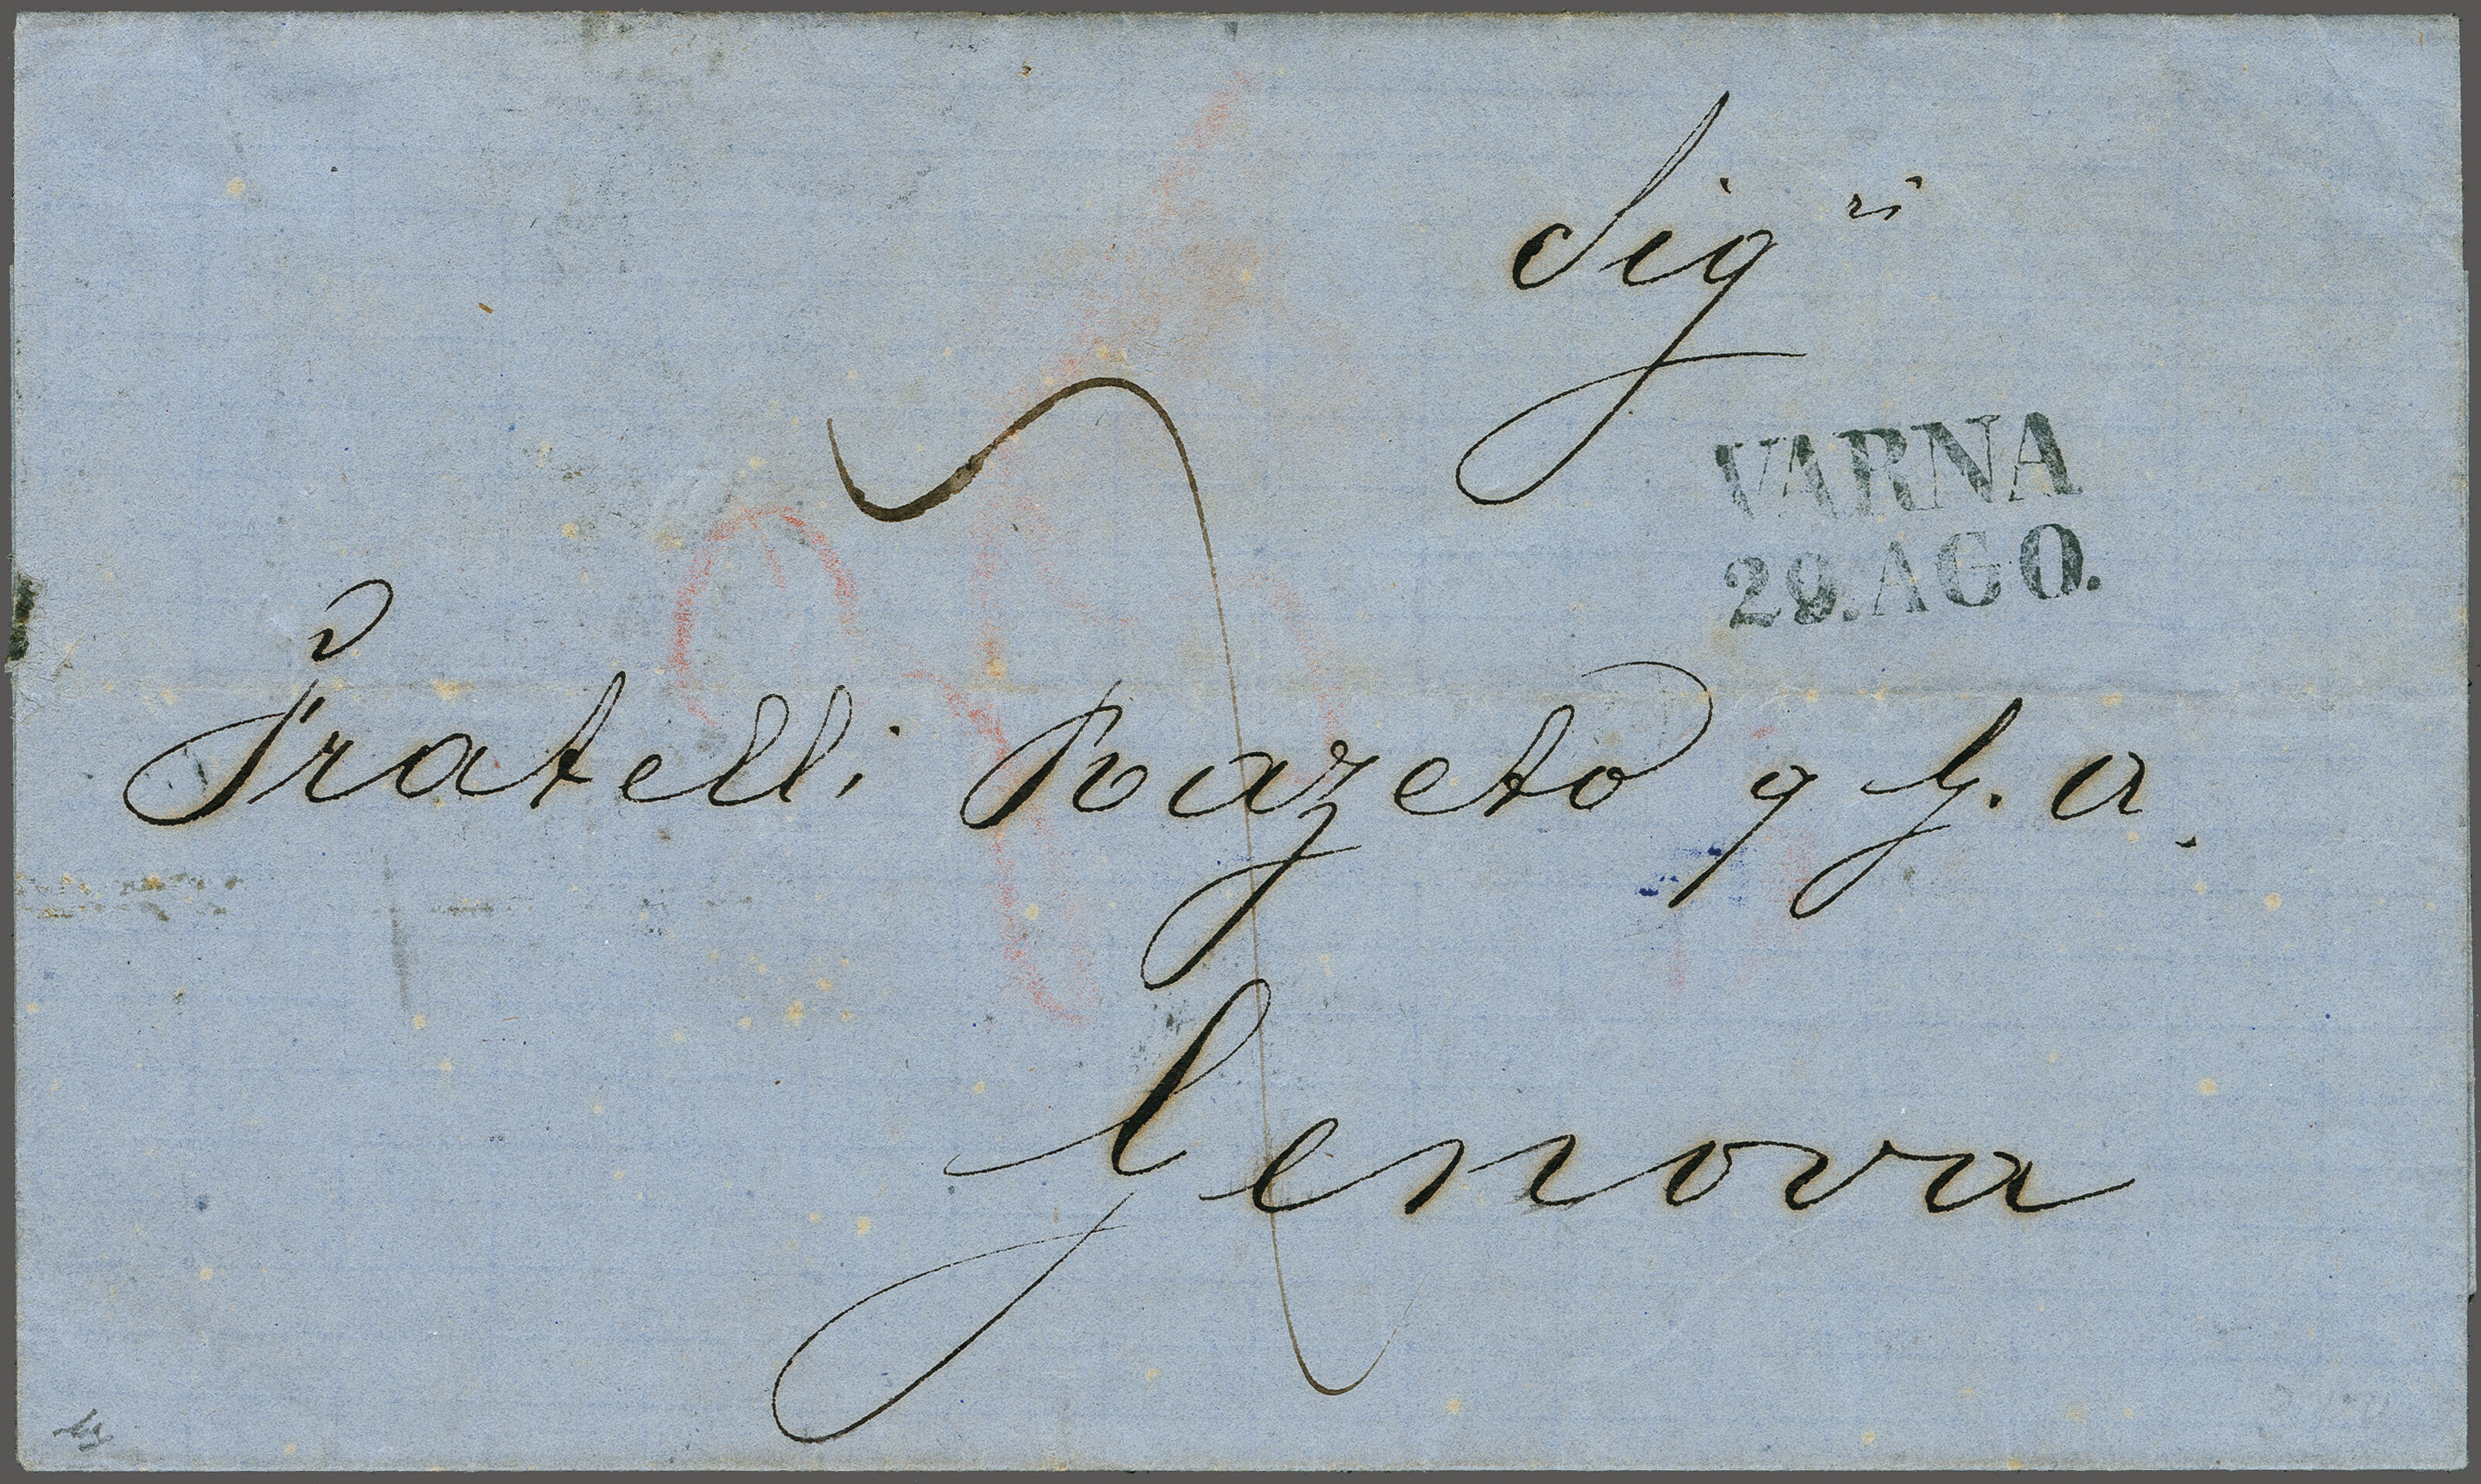 Sig.ri
VARNA
29.AGO.
Fratelli Razeto q G. A.
Genova